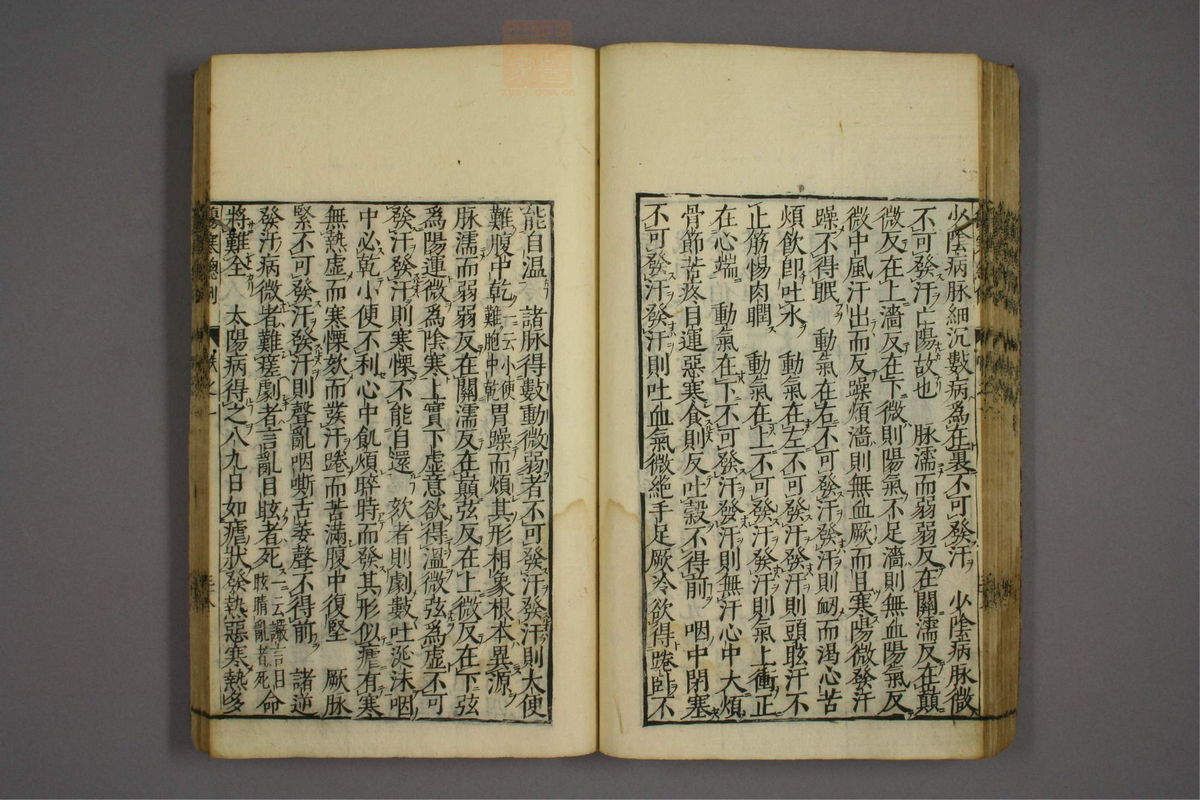 少陰病脉細沉數病爲在裏不可發汗　少陰病脉微
不可發汗亡陽故也　脉濡而弱弱反在關濡反在巔
微反在上濇反在下微則陽氣不足濇則無血陽氣反
微中風汗出而反躁煩濇則無血厥而且寒陽微發汗
躁不得眠　動氣在右不可發汗發汗則衂而渴心苦
煩飲卽吐水　動氣在左不可發汗發汗則頭眩汗不
止筋惕肉瞤　動氣在上不可發汗發汗則氣上衝正
在心端　動氣在下不可發汗發汗則無汗心中大煩
骨節苦疼目運惡寒食則反吐穀不得前　咽中閉塞
不可發汗發汗則吐血氣微絶手足厥冷欲得踡臥不
能自溫　諸脉得數動微弱者不可發汗發汗則大便
難腹中乾一云小便難胞中乾胃躁而煩其形相象根本異源
脉濡而弱弱反在關濡反在巔弦反在上微反在下弦
爲陽運微爲陰寒上實下虛意欲得溫微弦爲虛不可
發汗發汗則寒慄不能自還　欬者則劇數吐涎沫咽
中必乾小便不利心中飢煩晬時而發其形似瘧有寒
無熱虛而寒慄欬而發汗踡而苦滿腹中復堅　厥脉
緊不可發汗發汗則聲亂咽嘶舌萎聲不得前　諸逆
發汗病微者難瘥劇者言亂目眩者死一云讝言目眩睛亂者死命
將難全　太陽病得之八九日如瘧狀發熱惡寒熱多